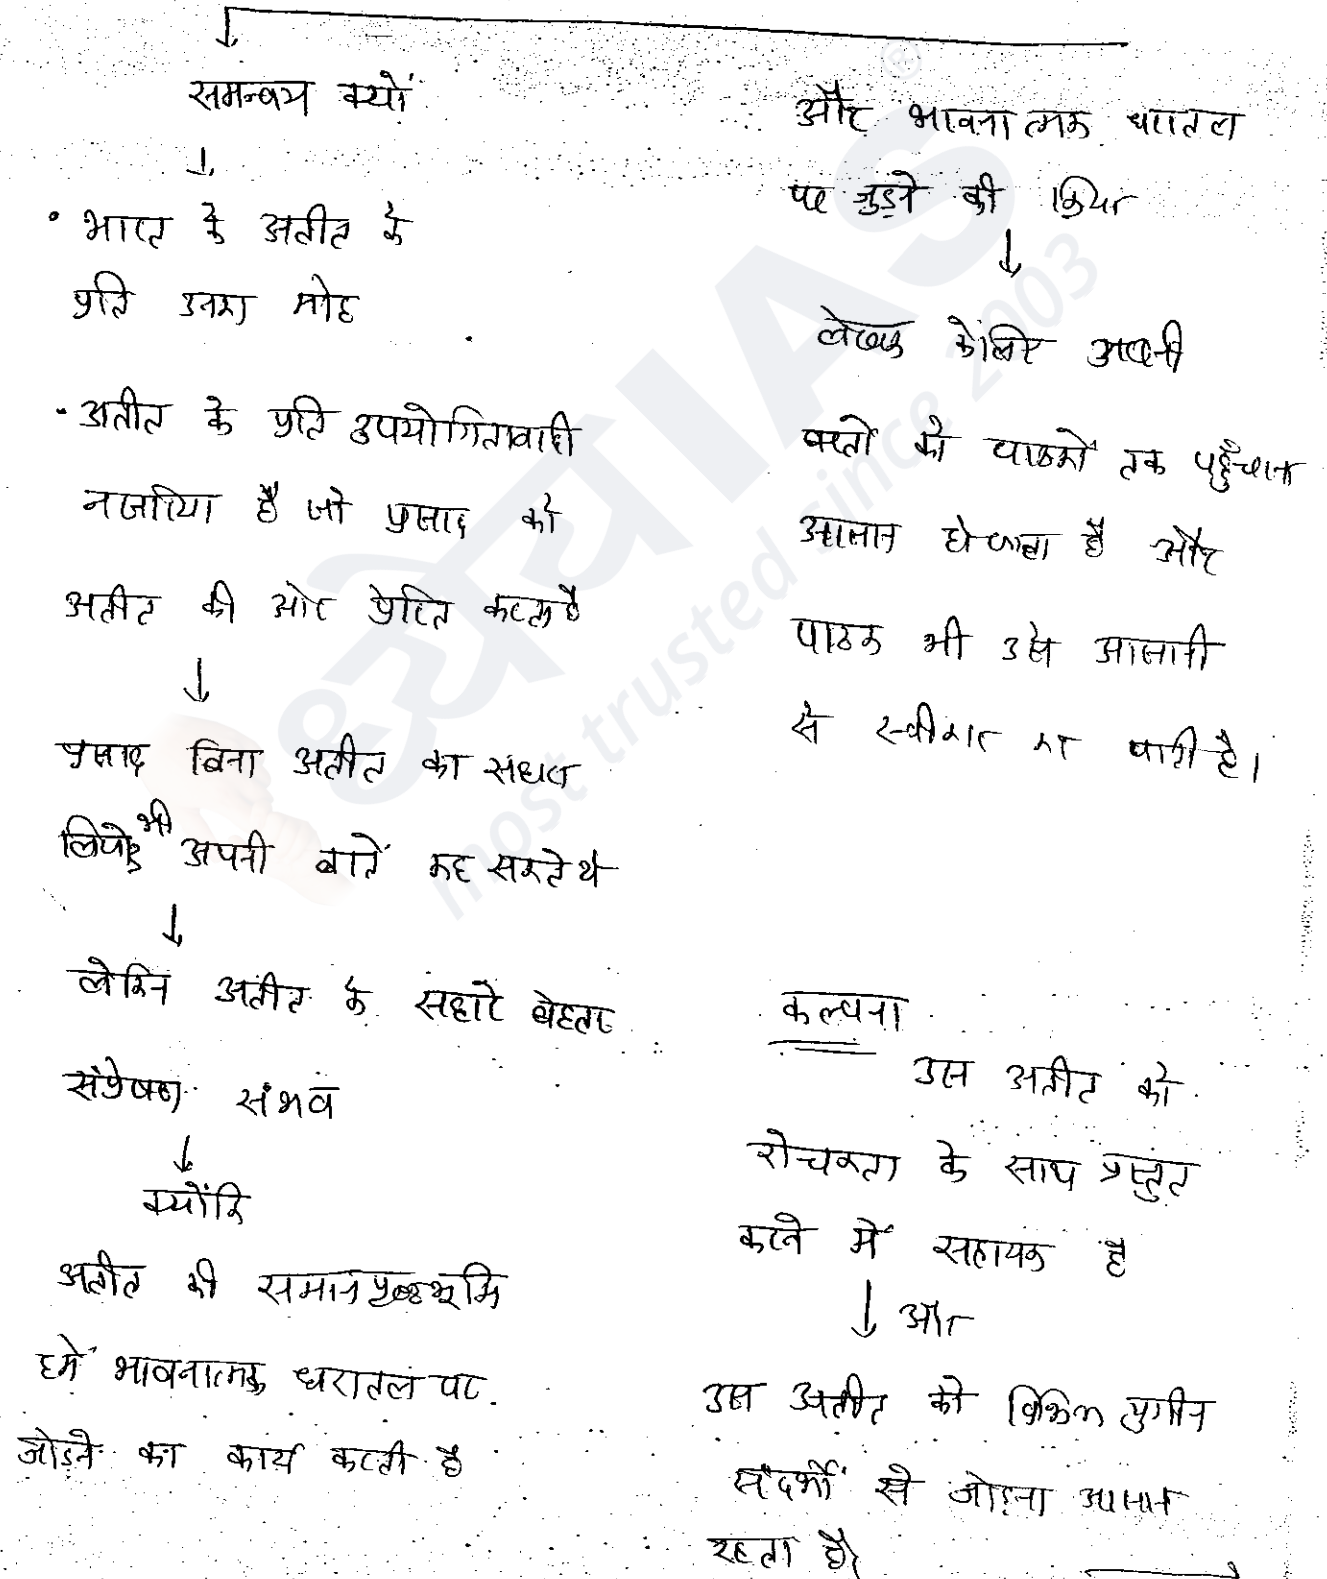 समन्वय क्यों
↓
• भारत के अतीत के
प्रति उनका मोह
• अतीत के प्रति उपयोगितावादी
नजरिया है जो प्रसाद को
अतीत की ओर प्रेरित करता है
↓
प्रसाद बिना अतीत का सहारा
लिये हुए भी अपनी बातें कह सकते थे
↓
लेकिन अतीत के सहारे बेहतर
संप्रेषण संभव
↓
क्योंकि
अतीत की समान पृष्ठभूमि
हमें भावनात्मक धरातल पर
जोड़ने का कार्य करती है
और भावनात्मक धरातल
पर जुड़ने की क्रिया
↓
लेखक के लिए अपनी
बातों को पाठकों तक पहुँचाना
आसान हो जाता है और
पाठक भी उसे आसानी
से स्वीकार कर पाते है।
कल्पना
उस अतीत को
रोचकता के साथ प्रस्तुत
करने में सहायक है
↓ और
उस अतीत को युगीन
संदर्भों से जोड़ना आसान
रहता है
ध्येय IAS®
most trusted since 2003